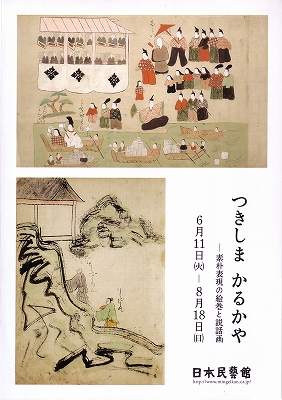 つきしま かるかや
―素朴表現の絵巻と説話画
6月11日(火)―8月18日(日)
日本民藝館
http://www.mingeikan.or.jp/